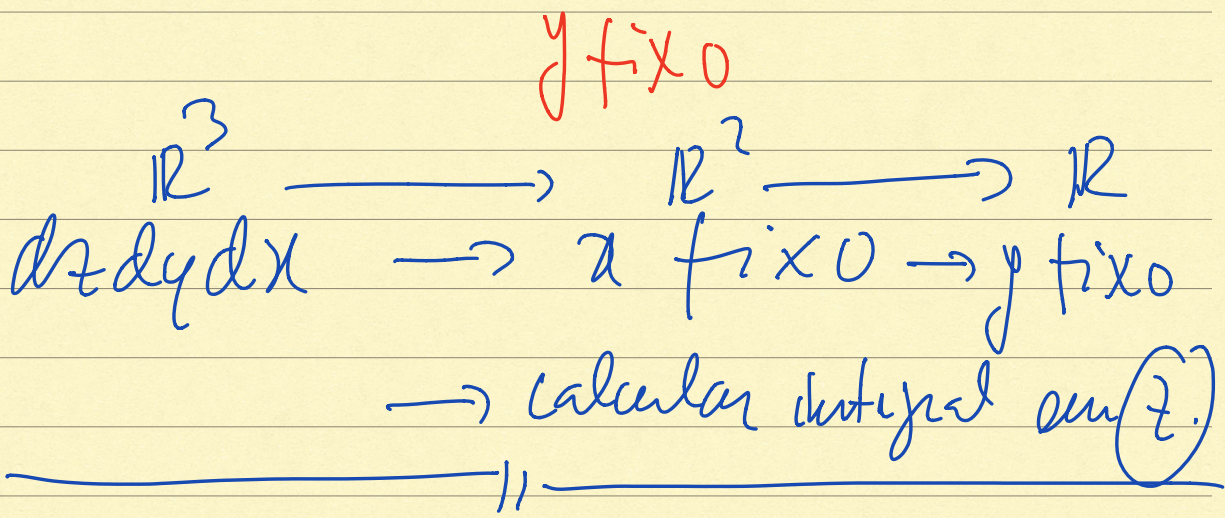 y fixo
ℝ³ → ℝ² → ℝ
dz dy dx → x fixo → y fixo
→ calcular integral em z.